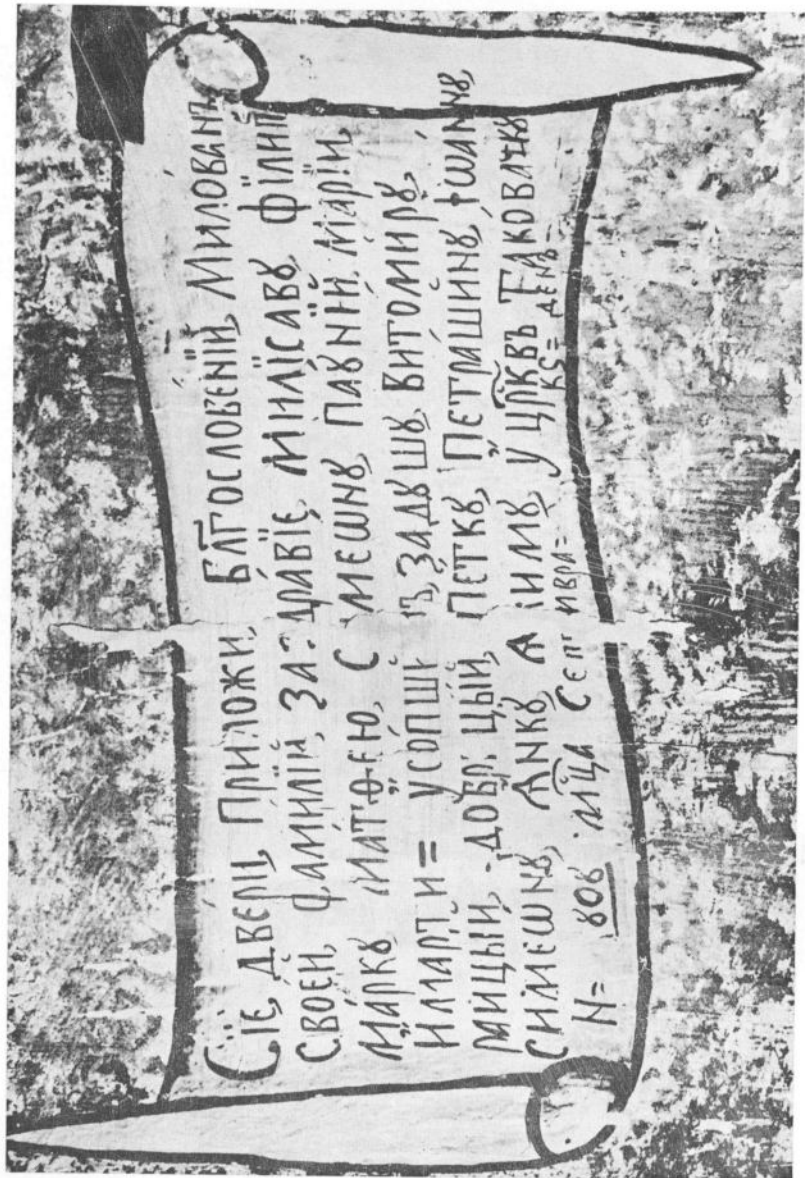 Сїе, двери, Приложи, Бл҃гословенїй, Милованъ
Своей, фамилїи, За драв̈їе, Милїсавꙋ, филип
Маркꙋ Матѳею, С меѡнꙋ, Паꙋнїй, Марїи,
И Марти = усопши ъ, За дꙋшꙋ, Витомирꙋ,
Мицый, ПеткꙊ, Петрашинꙋ, Іѡаннꙋ,
Симеѡнꙋ, Анкꙋ, У Цр҃квъ Таковачкꙋ
N= м҃ца Септ ивра = кѕ = день